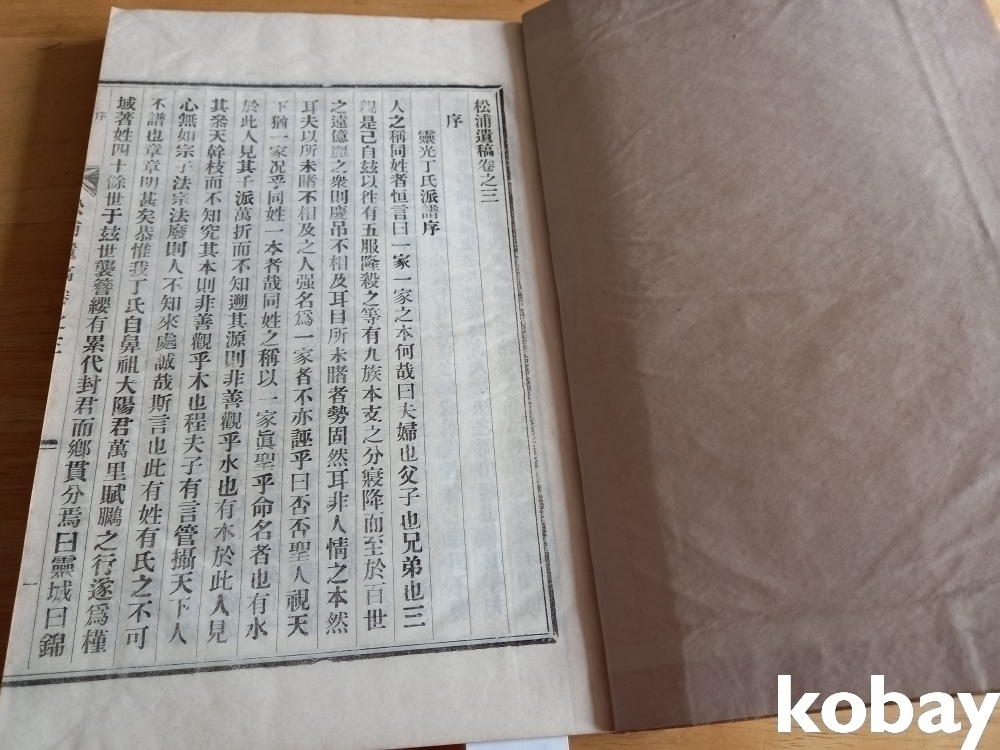 松浦遺稿卷之三
序
靈光丁氏派譜序
人之稱同姓者恒言曰一家一家之本何哉曰夫婦也父子也兄弟也三
親是已自玆以徃有五服隆殺之等有九族本支之分寢降而至於百世
之遠億麗之衆則慶吊不相及耳曰所未睹者勢固然耳非人情之本然
耳夫以所未睹不相及之人强名爲一家者不亦誣乎曰否否聖人視天
下猶一家况乎同姓一本者哉同姓之稱以一家眞聖乎命名者也有水
於此人見其千派萬折而不知遡其源則非善觀乎水也有木於此人見
其叅天幹枝而不知究其本則非善觀乎木也程夫子有言管攝天下人
心無如宗子法宗法廢則人不知來處誠哉斯言也此有姓有氏之不可
不譜也章章明甚矣恭惟我丁氏自鼻祖大陽君萬里賦鵬之行遂爲槿
域著姓四十餘世于玆世襲簪纓有累代封君而鄕貫分焉曰靈城曰錦
序
一
kobay